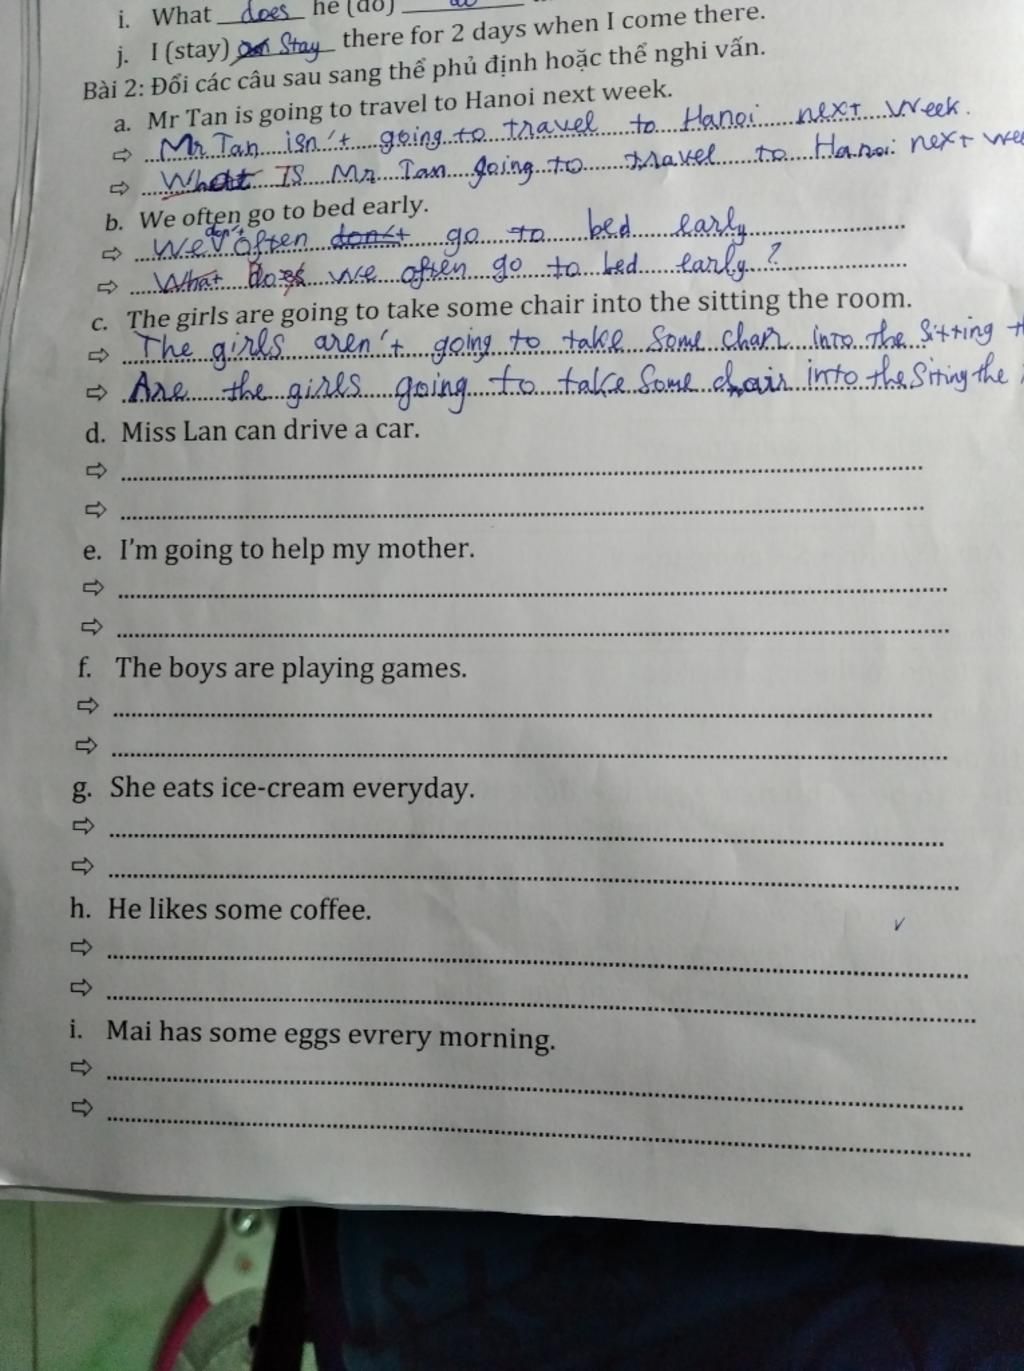 i. What does he (do)
j. I (stay) Stay there for 2 days when I come there.
Bài 2: Đổi các câu sau sang thể phủ định hoặc thể nghi vấn.
a. Mr Tan is going to travel to Hanoi next week.
⇨ Mr Tan isn't going to travel to Hanoi next week.
⇨ What Is Mr Tan going to travel to Hanoi next
b. We often go to bed early.
⇨ We don't often don't go to bed early
⇨ What Does we often go to bed early?
c. The girls are going to take some chair into the sitting the room.
⇨ The girls aren't going to take some chair into the sitting
⇨ Are the girls going to take some chair into the siting the
d. Miss Lan can drive a car.
⇨
⇨
e. I'm going to help my mother.
⇨
⇨
f. The boys are playing games.
⇨
⇨
g. She eats ice-cream everyday.
⇨
⇨
h. He likes some coffee.
⇨
⇨
i. Mai has some eggs evrery morning.
⇨
⇨